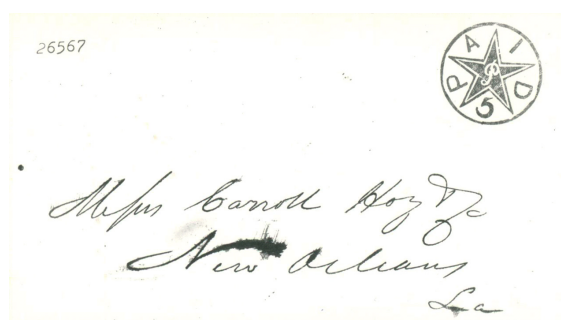 26567
PAID
P
5
Messrs Carroll Hoy & Co
New Orleans
La